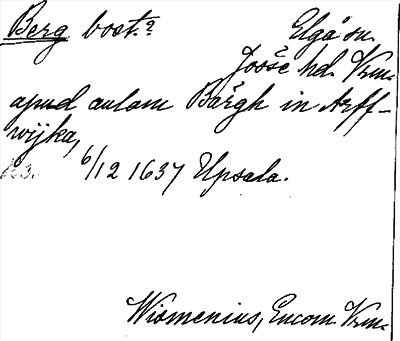 Berg bost.? Elgå sn.
Jösse hd. Vrm.
apud aulam Bårgh in Arff-
wijka,
6/12 1637 Upsala.
Wismenius, Encom. Vrm.